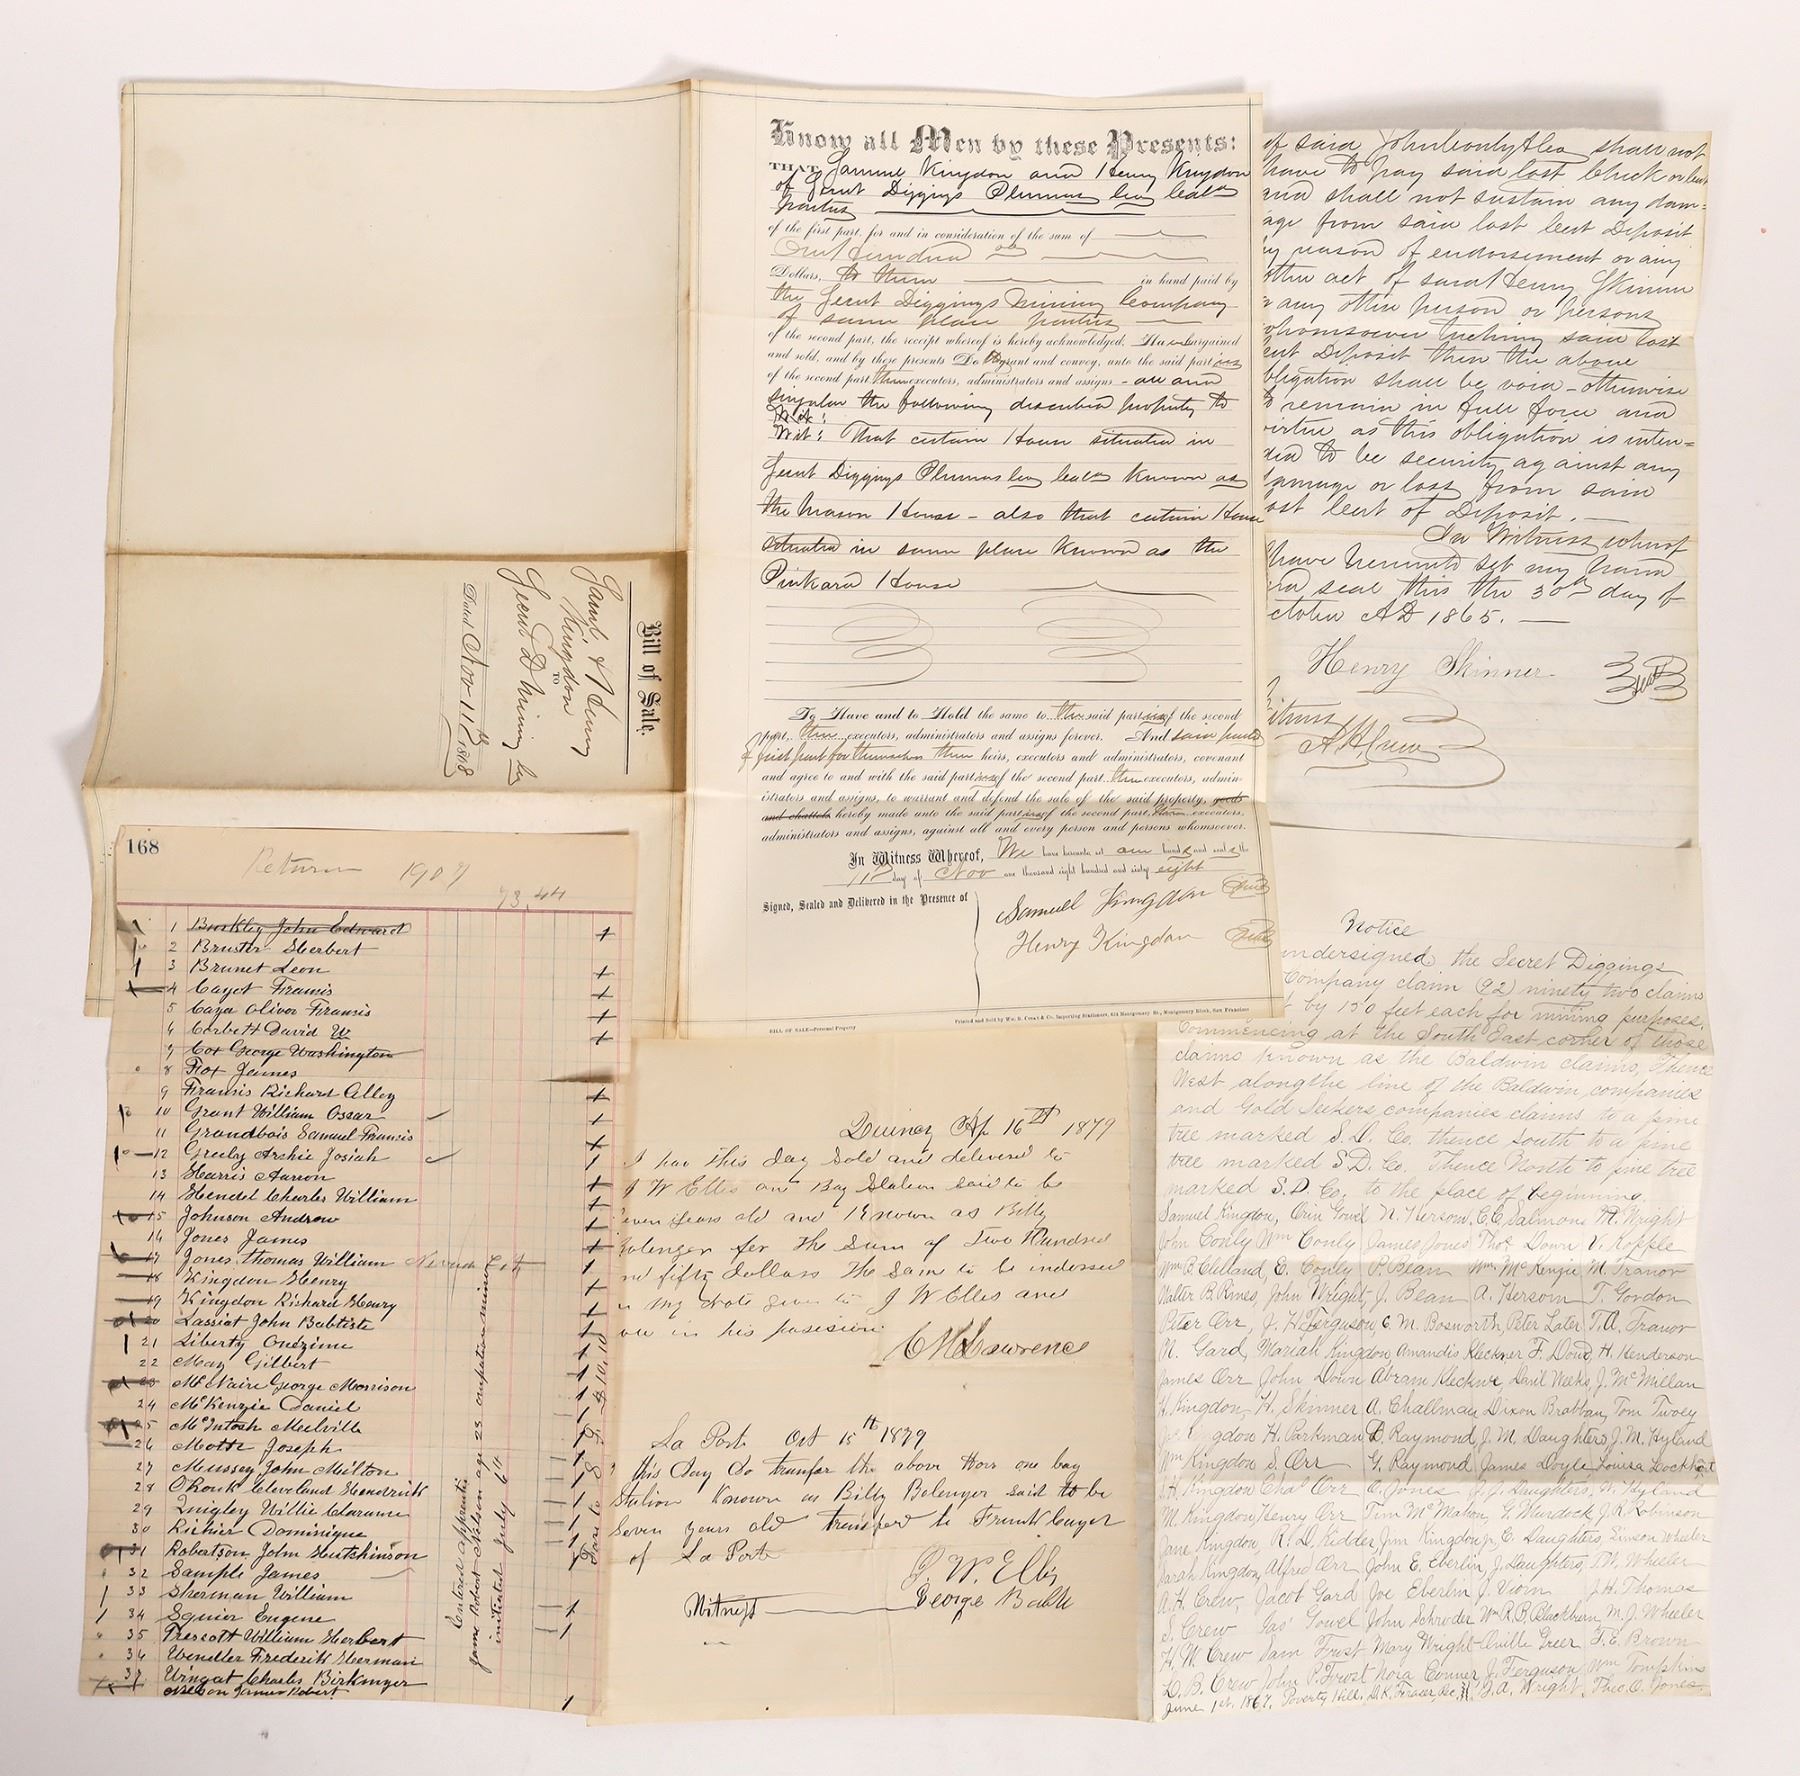 Know all Men by these Presents:
THAT Samuel Kingdon and Henry Kingdon
of Secret Diggings Plumas Coy Cala
parties
of the first part, for and in consideration of the sum of
One Hundred 00
Dollars, to them in hand paid by
the Secret Diggings Mining Company
of same place parties
of the second part, the receipt whereof is hereby acknowledged, Have bargained
and sold, and by these presents Do they grant and convey, unto the said parties
of the second part, their executors, administrators and assigns - all and
singular the following described property to
Wit:
Wit: That certain House situated in
Secret Diggings Plumas Coy Cala known as
the Mason House - also that certain House
situated in same place known as the
Pinkard House
To Have and to Hold the same to the said parties of the second
part, their executors, administrators and assigns forever. And said parties
of first part for themselves their heirs, executors and administrators, covenant
and agree to and with the said parties of the second part, their executors, admin-
istrators and assigns, to warrant and defend the sale of the said property, goods
and chattels hereby made unto the said parties of the second part, their executors,
administrators and assigns, against all and every person and persons whomsoever.
In Witness Whereof, We have hereunto set our hands and seals the
11th day of Nov one thousand eight hundred and sixty eight
Signed, Sealed and Delivered in the Presence of
Samuel Kingdon Seal
Henry Kingdon Seal
BILL OF SALE—Personal Property
Printed and Sold by Importing Stationers, Montgomery St., Montgomery Block, San Francisco
Bill of Sale.
Saml & Henry
Kingdon
TO
Secret D Mining Co
Dated Nov 11th 1868
of said John Conly &Co shall not
have to pay said lost Check or Cert
and shall not sustain any dam=
age from said lost Cert Deposit
by reason of endorsement or any
other act of said Henry Skinner
or any other person or persons
whomsoever touching said lost
Cert Deposit then the above
obligation shall be void - otherwise
to remain in full force and
virtue as this obligation is inten=
ded to be security against any
damage or loss from said
lost Cert of Deposit. —
In Witness whereof
I have hereunto set my hand
and seal this the 30th day of
October AD 1865. —
Henry Skinner Seal
Witness
A H Crew
168
Return 1907
73,44
1 Burkley John Edward
2 Bruster Herbert
3 Brunet Leon
4 Cayot Francis
5 Caya Oliver Francis
6 Corbett David W
7 Cox George Washington
8 Fox James
9 Francis Richard Alley
10 Grant William Oscar
11 Grandbois Samuel Francis
12 Greely Archie Josiah
13 Harris Aaron
14 Hendel Charles William
15 Johnson Andrew
16 Jones James
17 Jones Thomas William Nevada City
18 Kingdon Henry
19 Kingdon Richard Henry
20 Lassiat John Babtiste
21 Liberty Onezime
22 May Gilbert
23 McNaire George Morrison
24 McKenzie Daniel
25 McIntosh Melville
26 Mottz Joseph
27 Mussey John Milton
28 O'Rourk Cleveland Hendrick
29 Quigley Willie Clarance
30 Richier Dominique
31 Robertson John Hutchinson
32 Sample James
33 Sherman William
34 Squier Eugene
35 Trescott William Herbert
36 Wendler Frederik Herman
37 Wingat Charles Birkmyer
Nelson James Robert
Entered apprentic
James Robert Nelson age 23 ocupation miner
initiated July 6th
Quincy Ap 16th 1879
I hav this day Sold and delivered to
J W Ellis one Bay Stalion said to be
seven years old and Known as Billy
Bolenger for the Sum of Two Hundred
and fifty dollars the same to be indorsed
on my Note given to J W Ellis and
now in his posesion
C H Lawrence
La Port Oct 15th 1879
I this day do transfer the above Hors one bay
Stalion Known as Billy Bolenger said to be
Seven years old transferd to Frank Cayot
of La Port
J. W. Ellis
Witness — George Babb
Notice
undersigned, the Secret Diggings
Company claim (92) ninety two claims
by 150 feet each for mining purposes.
Commencing at the South East corner of those
claims known as the Baldwin claims, Thence
West along the line of the Baldwin companies
and Gold Seekers companies claims to a pine
tree marked S. D. Co. thence South to a pine
tree marked S. D. Co. Thence North to pine tree
marked S. D. Co. to the place of beginning.
Samuel Kingdon, Orin Gowel N. Hersom, C.C. Salmons H. Wright
John Conly Wm Conly James Jones Thos Down V. Kopple
Wm B. Clelland, E. Conley P. Bean Wm. McKenzie M. Tranor
Walter B. Rines, John Wright, J. Bean A. Hersom T. Gordon
Peter Orr, J. H. Ferguson, E. M. Bosworth, Peter Later T. A. Tranor
N. Gard, Mariah Kingdon, Amandis Kleckner F. Down, H. Henderson
James Orr John Down Abram Kleckne, David Weeks, J. McMillan
H. Kingdon, H. Skinner A. Challman, Dixon Brabban, Tom Twoey
Kingdon H. Parkman D. Raymond, J. M. Daughters, J. M. Hyland
Wm Kingdon S. Orr G. Raymond James Doyle, Louisa Lockhart
S. H. Kingdon Chas Orr C. Jones J. J. Daughters, W. Hyland
M. Kingdon, Henry Orr Tim McMahon, G. Murdock, J. R. Robinson
Jane Kingdon, R. D. Kidder, Jim Kingdon jr, C. Daughters, Simson Wheeler
Sarah Kingdon, Alfred Orr John E. Eberlin, J. Daughters, T. W. Wheeler
A. H. Crew, Jacot Gard Joe Eberlin J. Viorn J. H. Thomas
S. Crew Jas Gowel John Schroder Wm R. B. Blackbern, M. J. Wheeler
H. M. Crew Sam Frost Mary Wright Orville Greer F. E. Brown
L. B. Crew John P. Frost Nora Conner J. Ferguson, Wm Tompkins
June 1st. 1867. Poverty Hill. D. K. Frazer, Rec J. A. Wright, Theo. O. Jones.